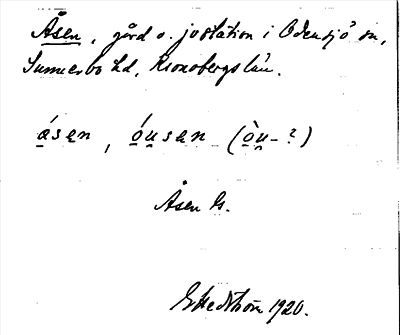 Åsen, gård o. jvstation i Odensjö sn,
Sunnerbo hd, Kronobergs län.
ásen, óusen (òu- ?)
Åsen G.
G Hedström 1920.